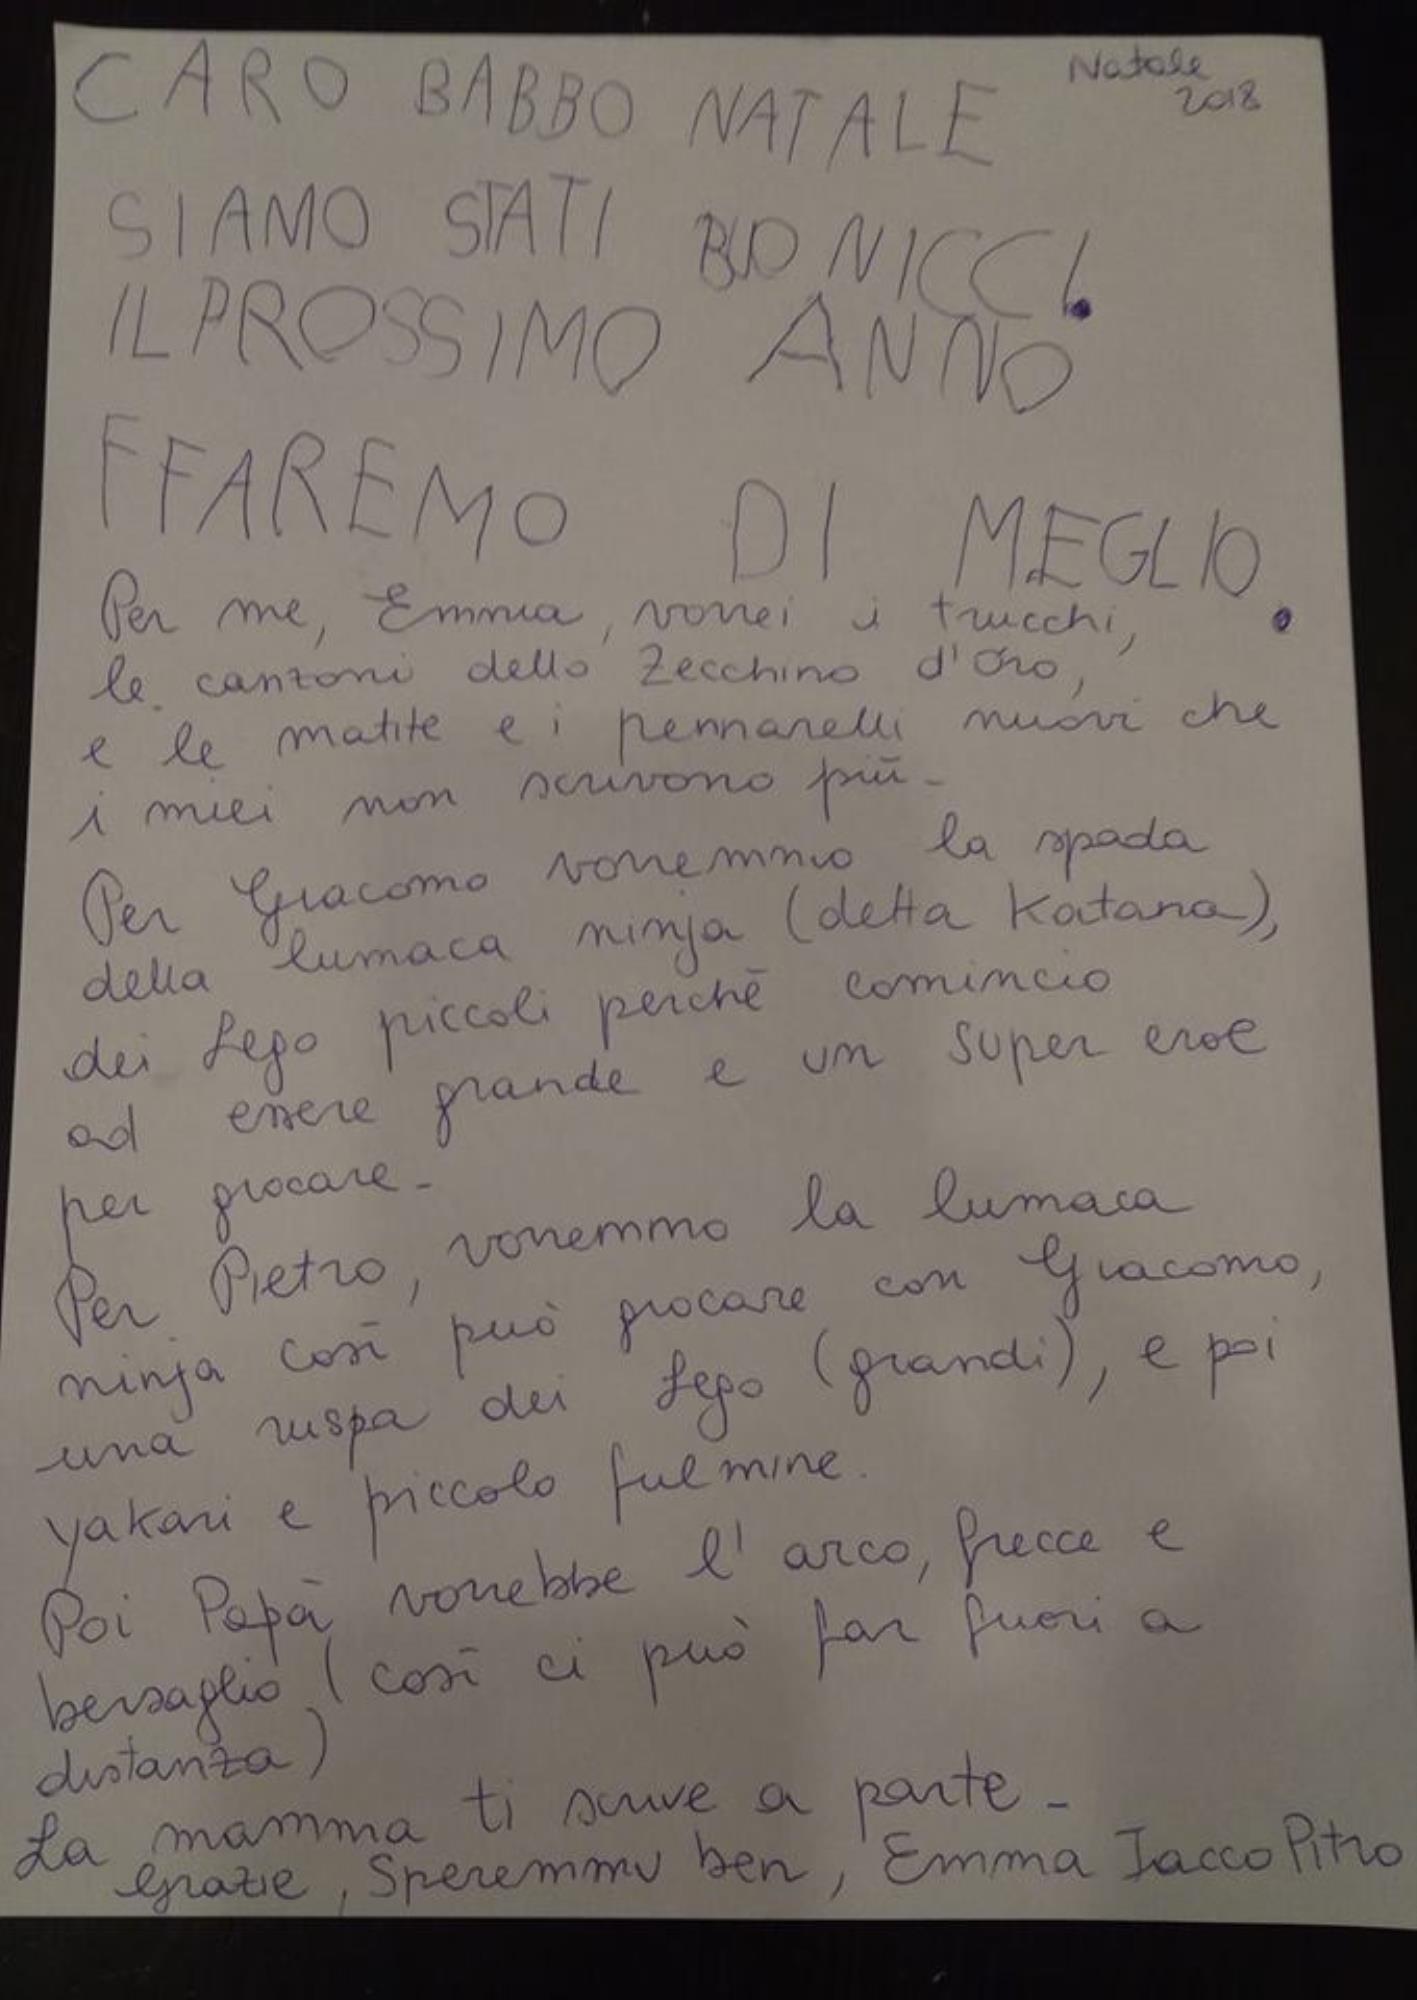 Natale
2018
CARO BABBO NATALE
SIAMO STATI BUONICCI.
IL PROSSIMO ANNO
FFAREMO DI MEGLIO.
Per me, Emma, vorrei i trucchi,
le canzoni dello Zecchino d'Oro,
e le matite e i pennarelli nuovi che
i miei non scrivono più-
Per Giacomo vorremmo la spada
della lumaca ninja (detta Katana),
dei Lego piccoli perchè comincio
ad essere grande e un super eroe
per giocare-
Per Pietro, vorremmo la lumaca
ninja così può giocare con Giacomo,
una ruspa dei Lego (grandi), e poi
yakari e piccolo fulmine.
Poi Papà vorrebbe l'arco, frecce e
bersaglio (così ci può far fuori a
distanza)
La mamma ti scrive a parte-
Grazie, Speremmu ben, Emma Jacco Pitro